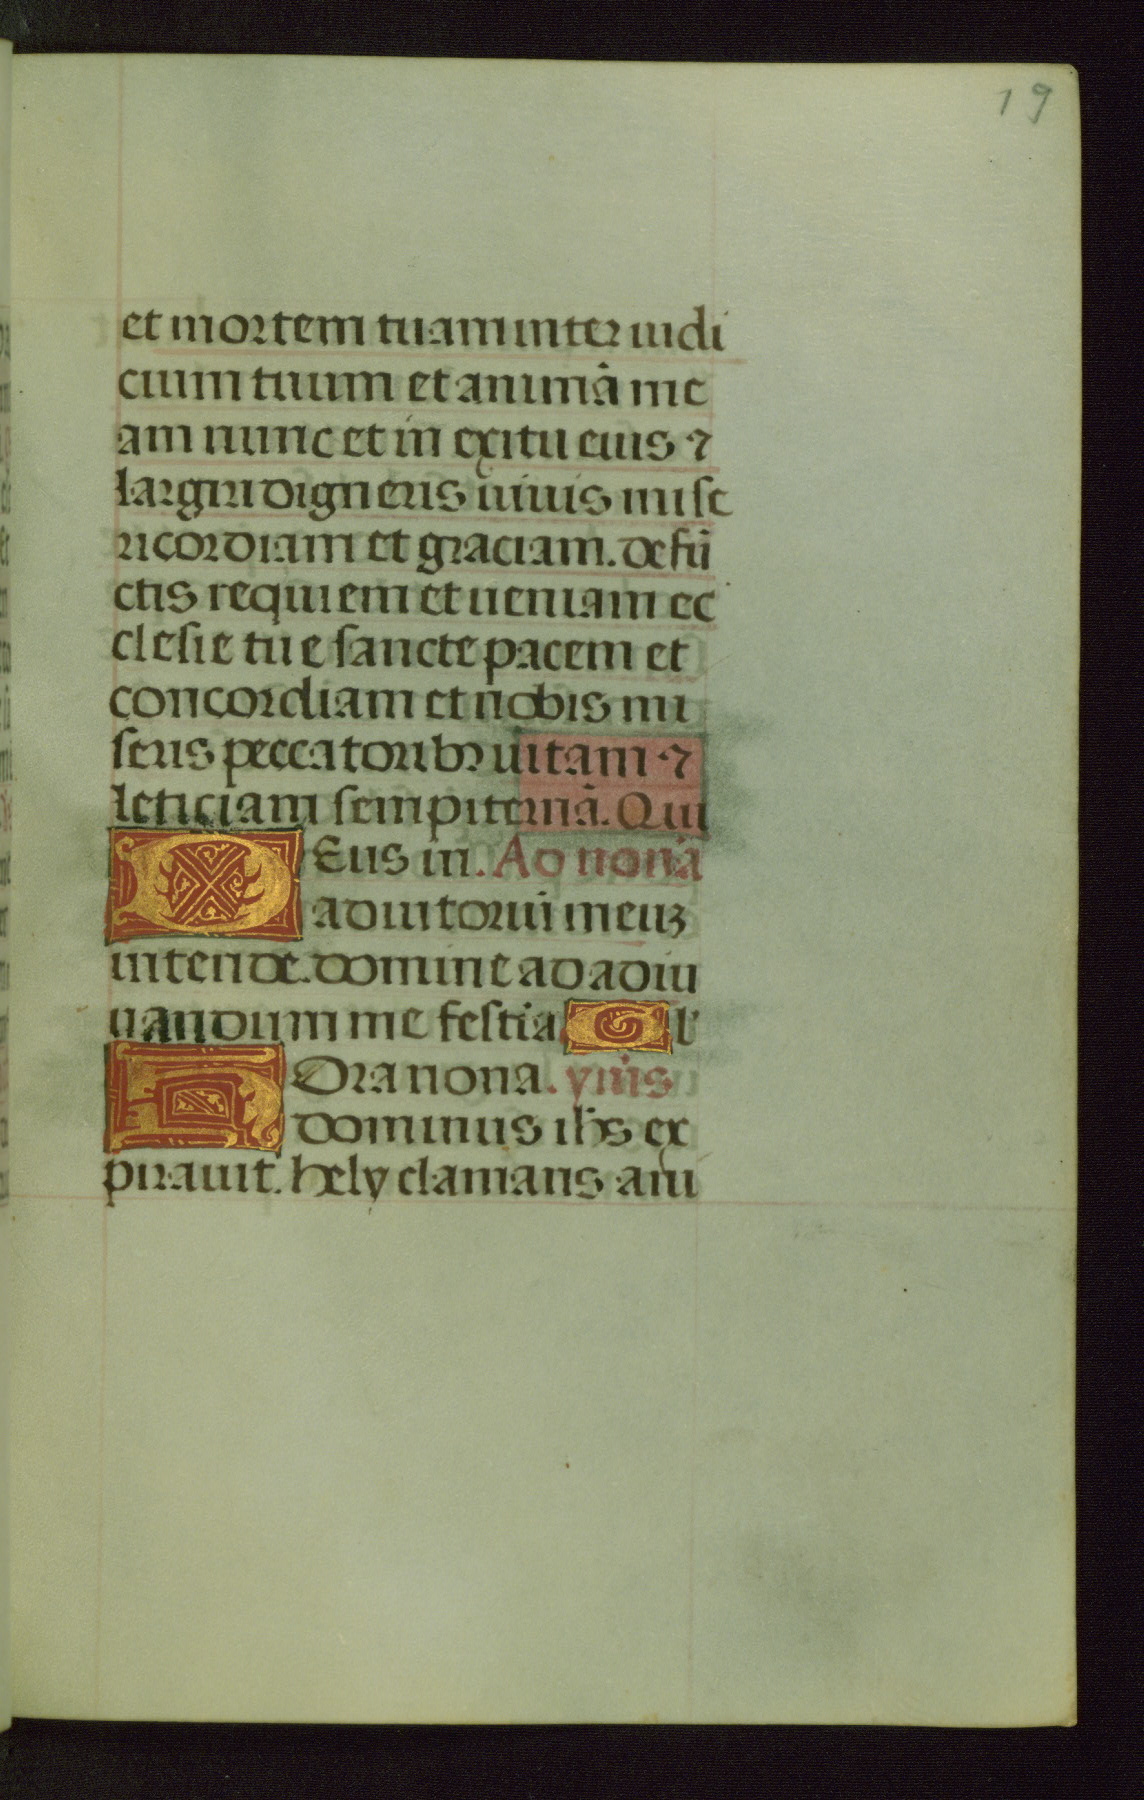 19
et mortem tuam inter iudi
cium tuum et animā me
am nunc et in exitu eius ⁊
largiri digneris uiuis mise
ricordiam et graciam. defū
ctis requiem et ueniam ec
clesie tue sancte pacem et
concordiam et nobis mi
seris peccatoribꝰ uitam ⁊
leticiam sempiternā. Qui
DEus in. Ad nonā
adiutoriū meuꝫ
intende. domine ad adiu
uandum me festia Gl'
HOra nona. ymꝰs
dominus ihs ex
pirauit. hely clamans ani